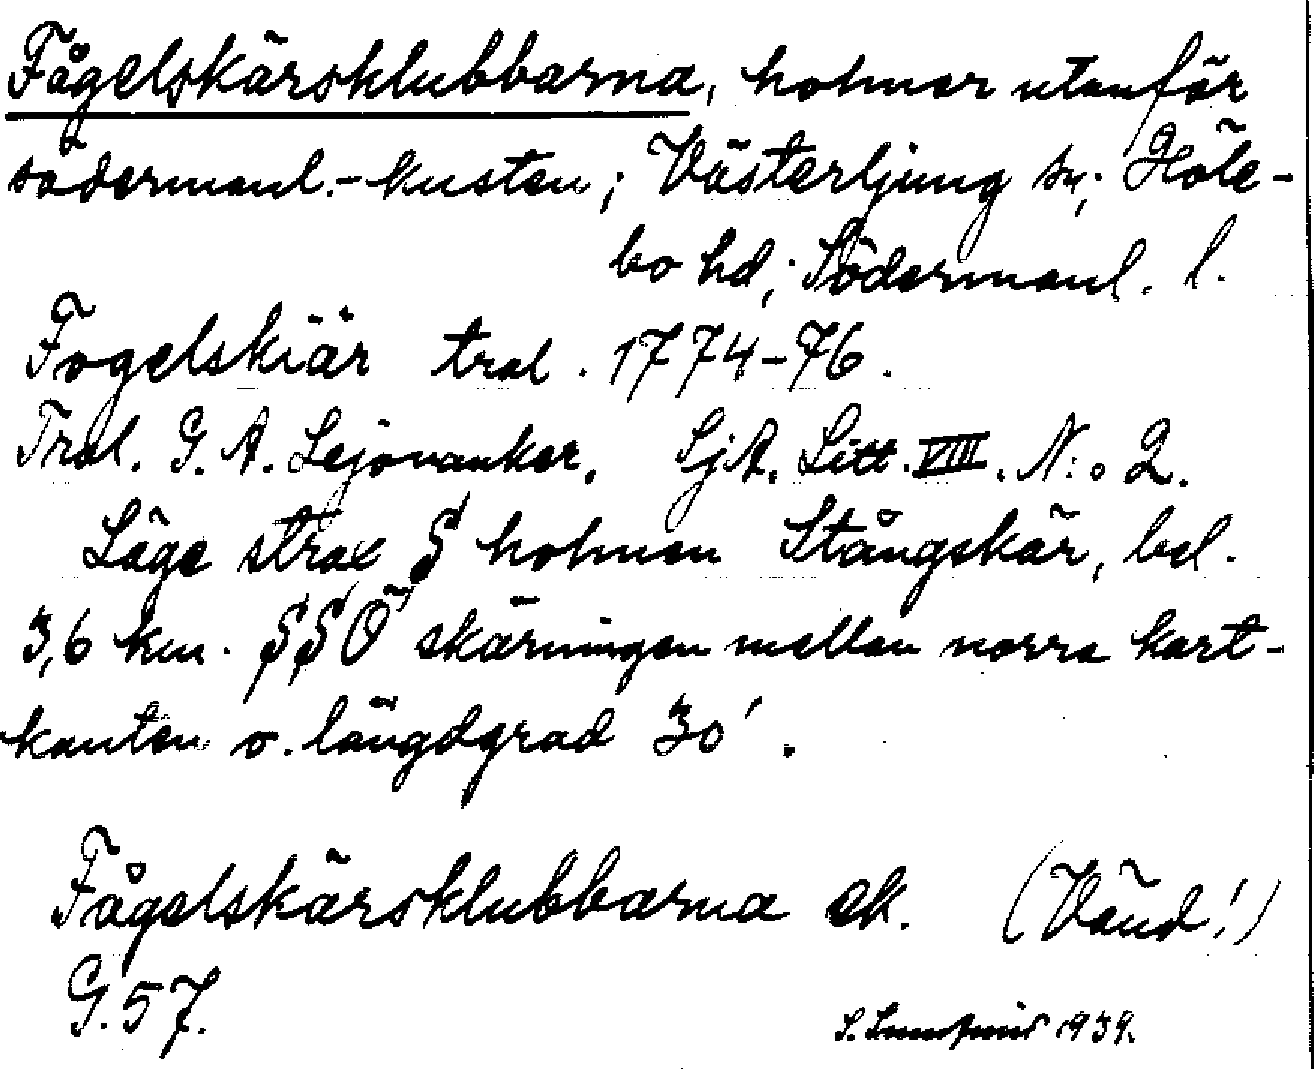 Fågelskärsklubbarna, holmar utanför
södermanl.-kusten; Västerljung sn; Höle-
bo hd; Södermanl. l.
Fogelskiär tral. 1774-76.
Tral. G. A. Lejonanker. SjA. Litt. VIII. N:o 2.
Läge strax S holmen Stångskär, bel.
3,6 km. SSÖ skärningen mellan norra kart-
kanten o. längdgrad 30'.
Fågelskärsklubbarna ek. (Vänd!)
G. 57.
S. 1939.